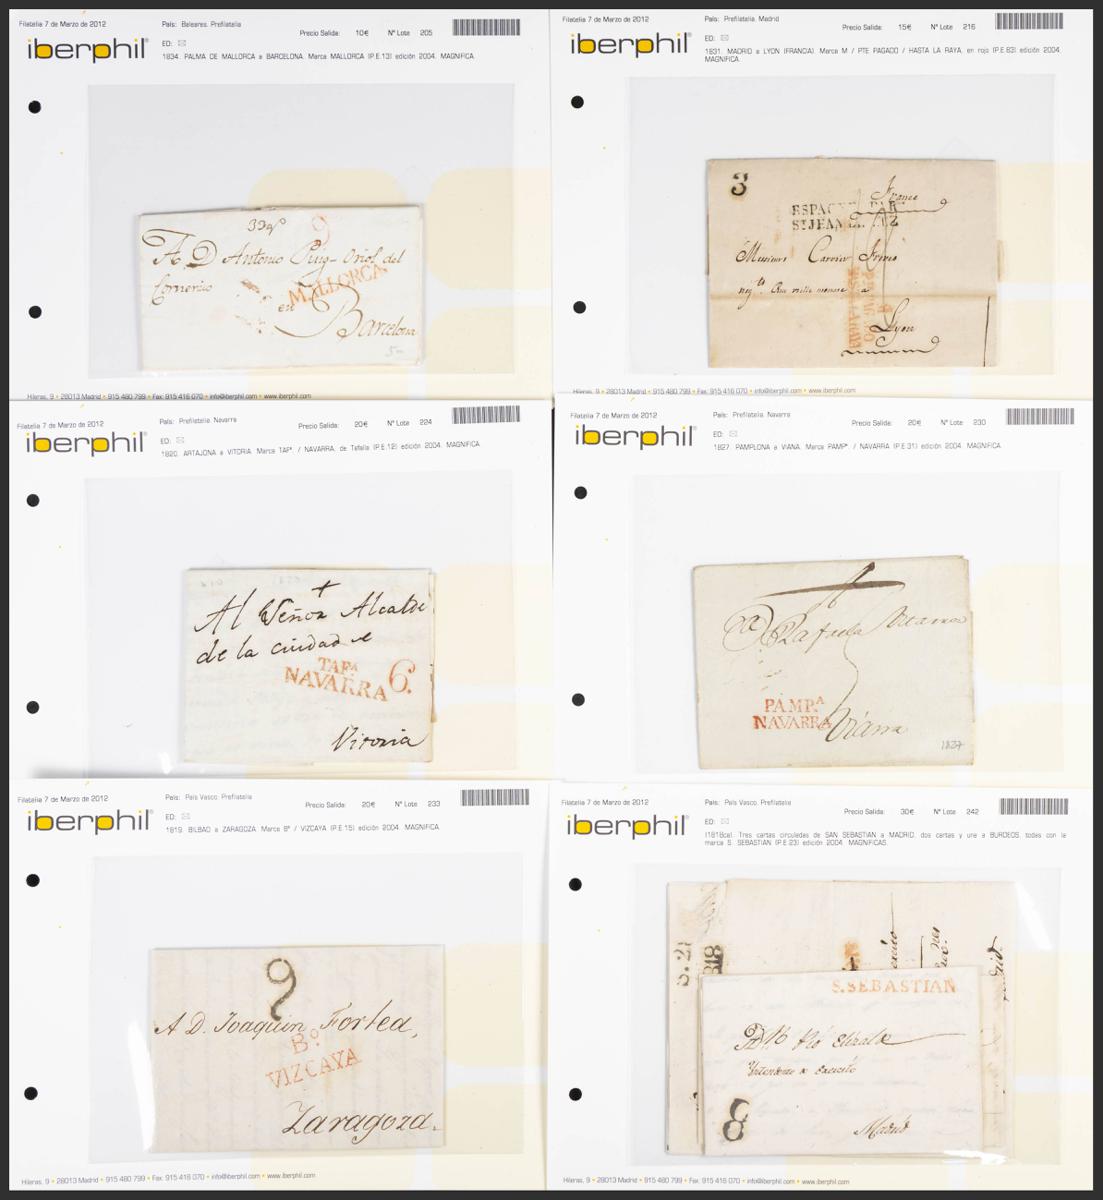 Filatelia 7 de Marzo de 2012
País: Baleares. Prefilatelia
Precio Salida: 10€ Nº Lote 205
iberphil®
ED: ✉
1834. PALMA DE MALLORCA a BARCELONA. Marca MALLORCA (P.E.13) edición 2004. MAGNIFICA.
9
A D Antonio Puig-Oriol del
Comercio
MALLORCA
en
Barcelona
Hileras, 9 • 28013 Madrid • 915 480 799 • Fax: 915 416 070 • info@iberphil.com • www.iberphil.com
Filatelia 7 de Marzo de 2012
País: Prefilatelia. Madrid
Precio Salida: 15€ Nº Lote 216
iberphil®
ED: ✉
1831. MADRID a LYON (FRANCIA). Marca M / PTE PAGADO / HASTA LA RAYA, en rojo (P.E.83) edición 2004.
MAGNIFICA.
3
France
ESPAGNE PAR
ST JEAN DE LUZ
Messieurs Carrier Frères
Lyon
Hileras, 9 • 28013 Madrid • 915 480 799 • Fax: 915 416 070 • info@iberphil.com • www.iberphil.com
Filatelia 7 de Marzo de 2012
País: Prefilatelia. Navarra
Precio Salida: 20€ Nº Lote 224
iberphil®
ED: ✉
1820. ARTAJONA a VITORIA. Marca TAFª. / NAVARRA, de Tafalla (P.E.12) edición 2004. MAGNIFICA.
+
Al Señor Alcalde
de la ciudad de
TAFA
NAVARRA 6.
Vitoria
Filatelia 7 de Marzo de 2012
País: Prefilatelia. Navarra
Precio Salida: 20€ Nº Lote 230
iberphil®
ED: ✉
1827. PAMPLONA a VIANA. Marca PAMPª. / NAVARRA (P.E.31) edición 2004. MAGNIFICA.
Rafaela
PAMP.A
NAVARRA
Viana
1827
Filatelia 7 de Marzo de 2012
País: País Vasco. Prefilatelia
Precio Salida: 20€ Nº Lote 233
iberphil®
ED: ✉
1819. BILBAO a ZARAGOZA. Marca Bº / VIZCAYA (P.E.15) edición 2004. MAGNIFICA.
9
A D. Joaquin Fortea,
Bo.
VIZCAYA
Zaragoza.
Hileras, 9 • 28013 Madrid • 915 480 799 • Fax: 915 416 070 • info@iberphil.com • www.iberphil.com
Filatelia 7 de Marzo de 2012
País: País Vasco. Prefilatelia
Precio Salida: 30€ Nº Lote 242
iberphil®
ED: ✉
(1818ca). Tres cartas circuladas de SAN SEBASTIAN a MADRID, dos cartas y una a BURDEOS, todas con la
marca S. SEBASTIAN (P.E.23) edición 2004. MAGNIFICAS.
S.SEBASTIAN
8
Madrid
Hileras, 9 • 28013 Madrid • 915 480 799 • Fax: 915 416 070 • info@iberphil.com • www.iberphil.com